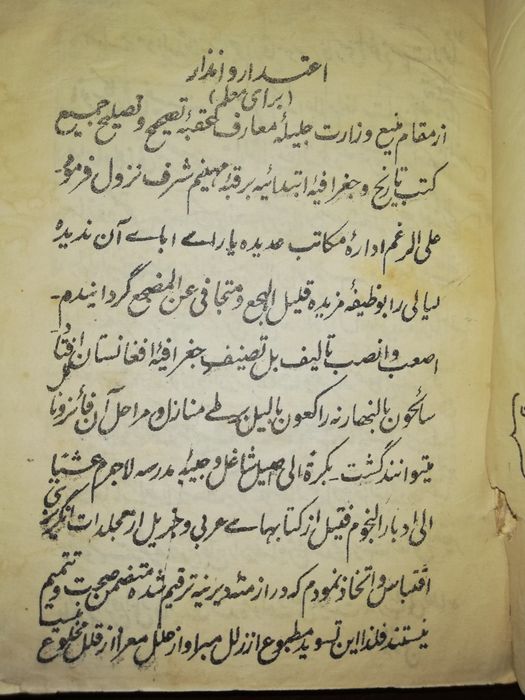 اعتذار و انذار
(برای معلم)
از مقام منیع وزارت جلیلهٔ معارف تصحیح و تصلیح جمیع
کتب تاریخ و جغرافیهٔ ابتدائیه برقبهٔ مهینم شرف نزول فرمود
علی الرغم ادارهٔ مکاتب عدیده یارائے اباے آن ندیده
لیالی را بوظیفهٔ مزیده قلیل الهجع و متجافی عن المضجع گردانیدم۔
اصعب و انصب تالیف بل تصنیف جغرافیهٔ افغانستان افتاد
سائحون بالنهار نه راکعون بالیل بر طے منازل و مراحل آن فائز و نا
میتوانند گشت۔ بکرة الی اصیل شاغل وجیبهٔ مدرسه لاجرم عشیا
الی ادبار النجوم فقیل از کتابهاے عربی و جزیل از مجلدات انگریزی
اقتباس و اتخاذ نمودم که در ازمنهٔ دیرینه ترقیم شده متضمن صحت و تتمیم
نیستند فلذا این تسوید مطبوع از زلل مبرا و از علل معرا از قلل مخلوع